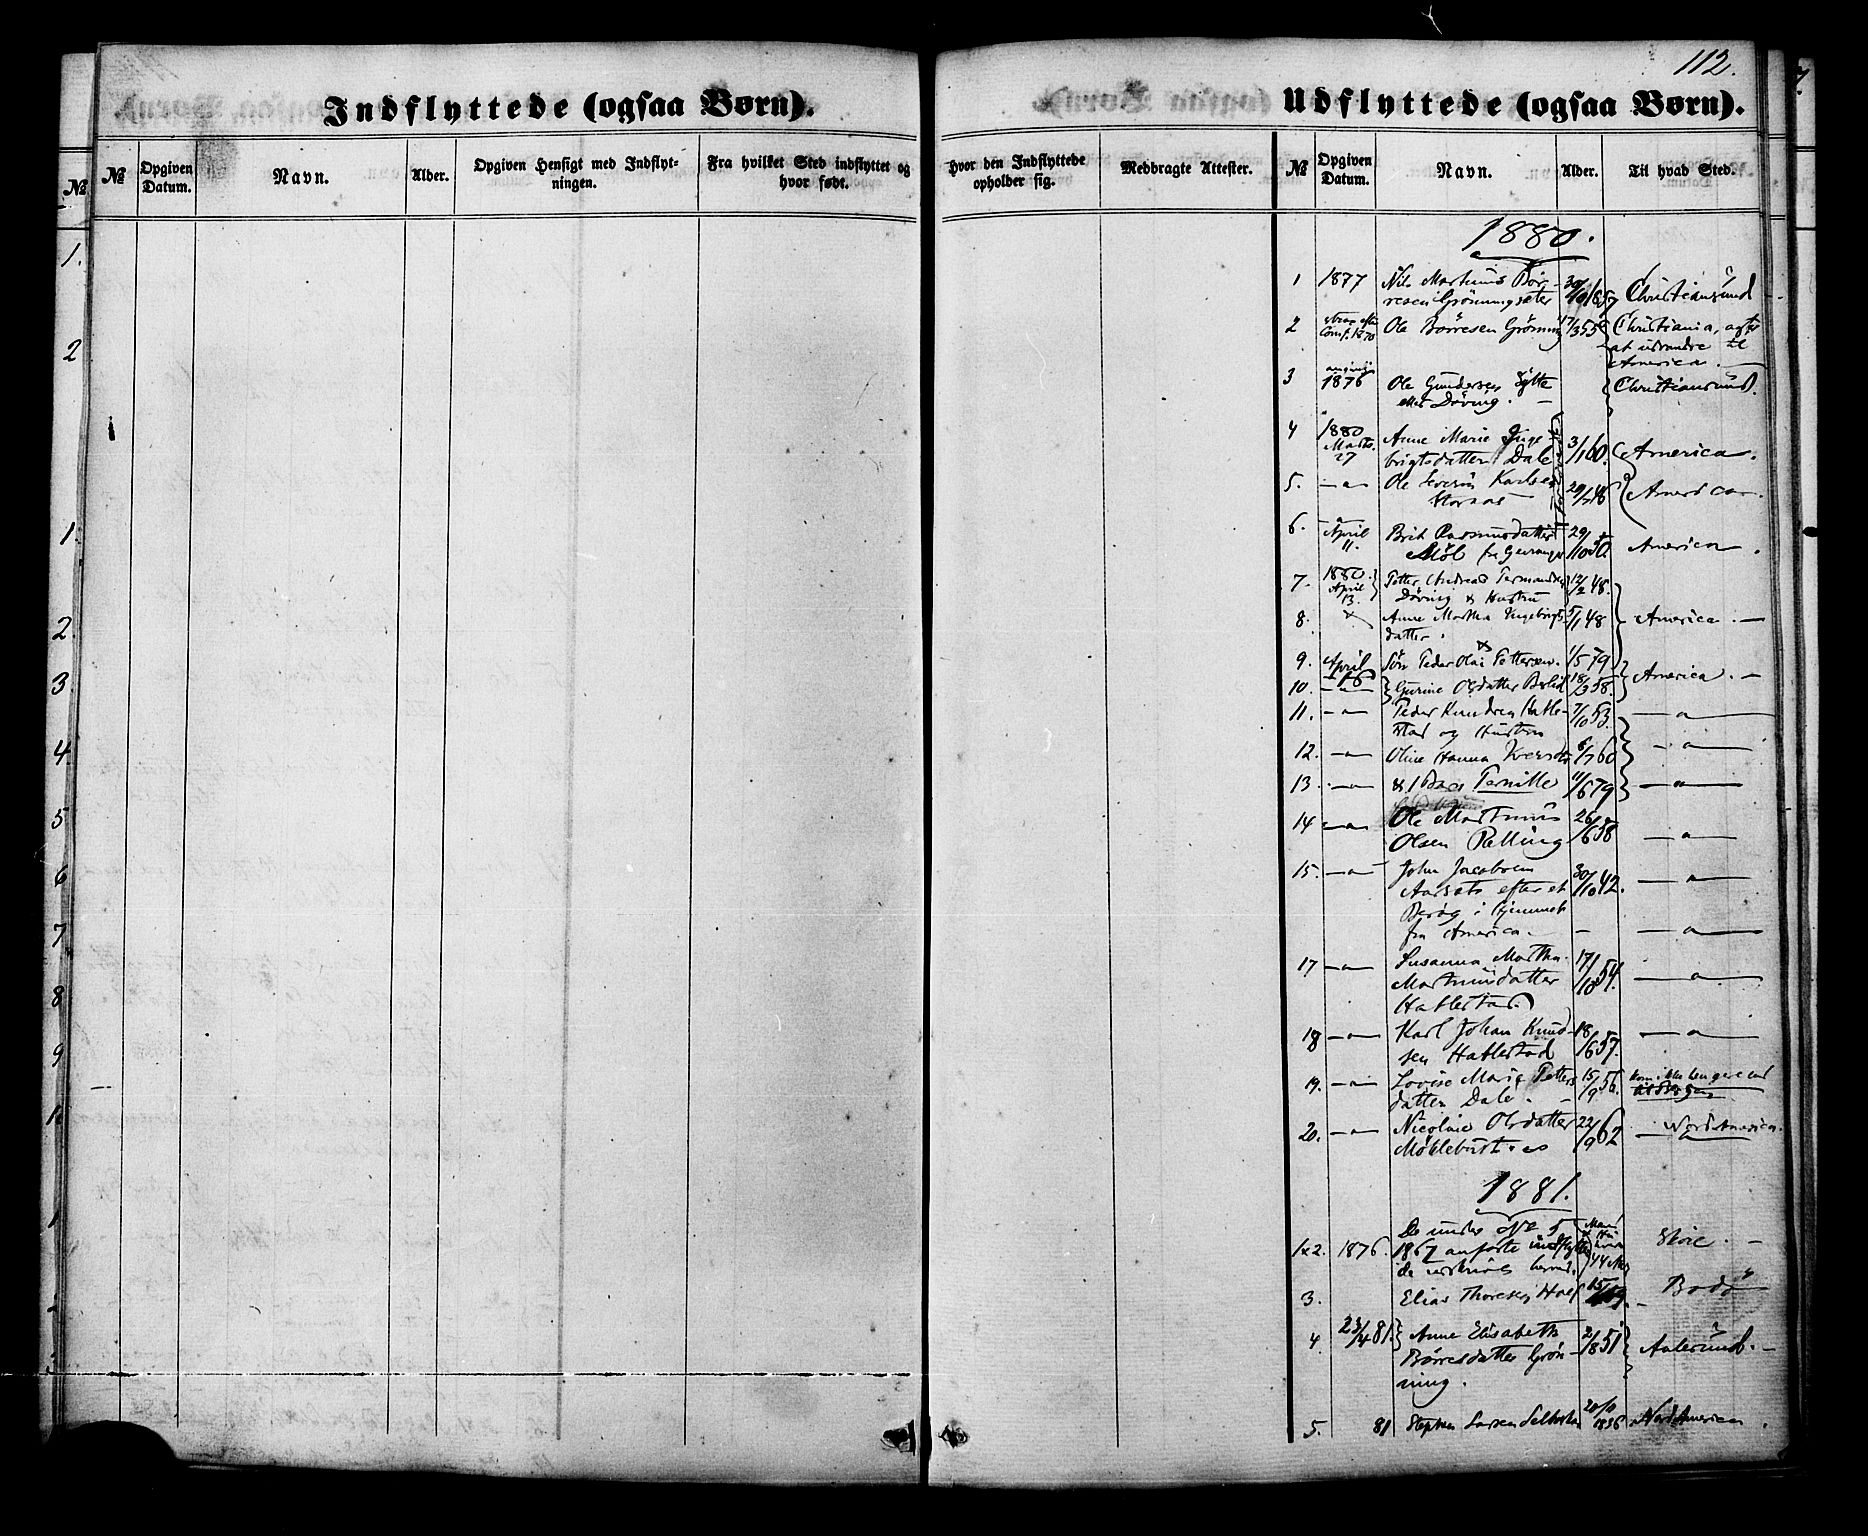 112.
Indflyttede (ogsaa Børn).
Udflyttede (ogsaa Børn).
№
№
Opgiven Datum.
Navn.
Alder.
Opgiven Hensigt med Indflyt-
ningen.
Fra hvilket Sted indflyttet og
hvor født.
Hvor den Indflyttede
opholder sig.
Medbragte Attester.
№
Opgiven Datum.
Navn.
Alder.
Til hvad Sted.
1880.
1 1877 Nils Martinus Bør-
resen Grönningsæter 30/10 1857 Christiansund
2 Conf. 1870 Ole Børresen Grönning 17/3 55 Christiania,
at udvandre til
America.
3 1876 Ole Gundersen Sylte
eller Døving. Christiansund.
4 1880 Marts 27 Anne Marie Inge-
brigtsdatter Dale 3/1 60. America.
5. —"— Ole Severin Karlsen
Stornæs 20/ 48 America.
6. April 11. Brit Rasmusdatter
fra Geiranger 29/10 50. America.
7. 1880 April 13. Petter Andreas
Døving & Hustru 12/2 48.
8. Anne Martha Ingebrigts-
datter. 5/1 48 America. —
9. April 16 Søn Peder Olai Pettersen. 1/5 79
10. —"— Gurine Olsdatter 18/ 58. America. —
11. —"— Peder Knudsen Hatle-
stad og Hustru 7/10 53. —"—
12. —"— Oline Hanna Iversdtr 6/7 60 —"—
13. —"— & 1 Barn Pernille 11/6 79 —"—
14 —"— Ole Martinus
Olsen Relling 26/6 58 —"—
15. —"— John Jacobsen
Aarsæt efter et
Besøg i Hjemmet
fra America. 30/10 42. —"—
—"—
17 —"— Susanna Martha
Martinusdatter
Hatlestad 17/10 54. —"—
18 —"— Karl Johan Knud-
sen Hatlestad 18/6 57. —"—
19. —"— Lovise Marie Petters-
datter Dale. 15/9 56. Kom ikke længere end
til Bergen
20. —"— Nicoline Olsdatter
Møklebust 22/9 62 — Nord America.
1881.
1&2. 1876. De under № 5
1867 anførte indflytte-
de Skoie. —
3. Elias Thoresen Hoel 15/ Bodø
4 23/4 81. Anne Elisabeth
Børresdatter Grön-
ning. 2/8 51 Aalesund. —
5. 81 Stephen Larsen 20/10 1836 Nord America.
1.
2
1.
2.
3
4
5
6
7
8
9